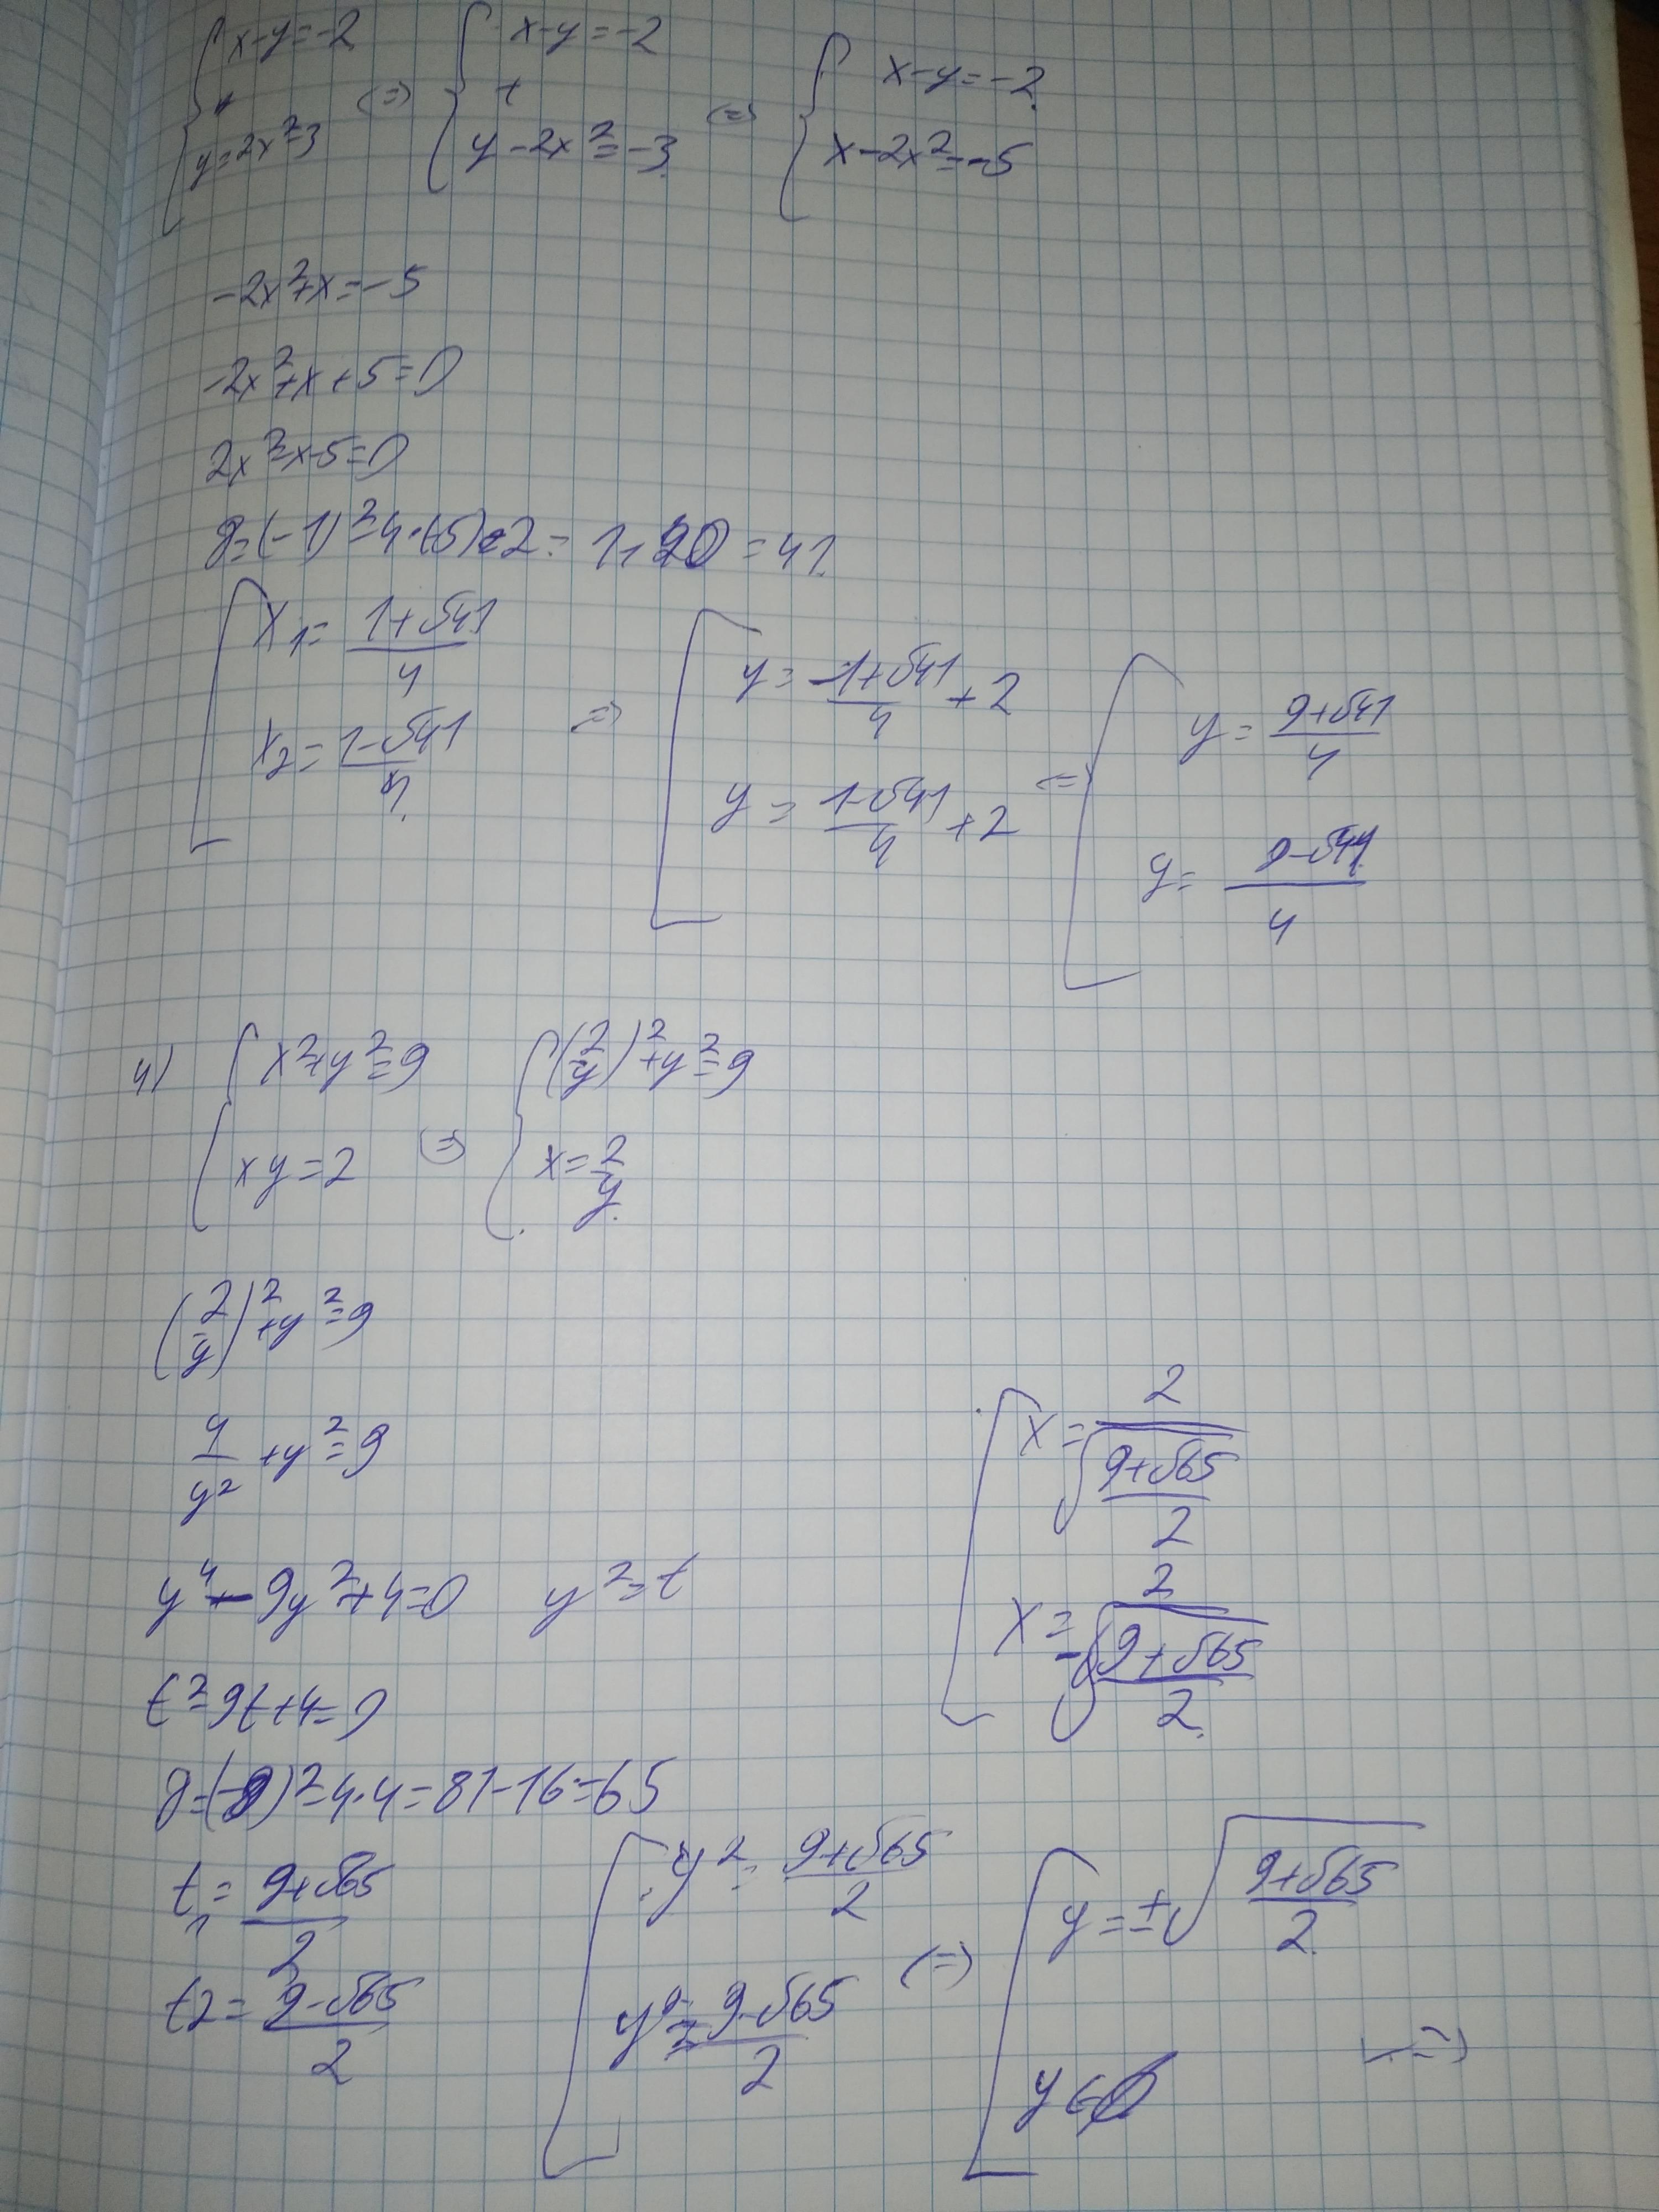 { x-y=-2 + y=2x²-3 (=) { x-y=-2 + y-2x²=-3 (=) { x-y=-2 x-2x²=-5
-2x²+x=-5
-2x²+x+5=0
2x²-x-5=0
D=(-1)²-4·(-5)·2= 1+ 40 =41
[ x₁= (1+√41)/4 x₂= (1-√41)/4 => [ y= (1+√41)/4 +2 y= (1-√41)/4 +2 (=) [ y= (9+√41)/4 y= (9-√41)/4
4) { x²+y²=9 xy=2 (=) { (2/y)²+y²=9 x=2/y
(2/y)²+y²=9
4/y² +y²=9
y⁴-9y²+4=0 y²=t
t²-9t+4=0
D=(-9)²-4·4=81-16=65
t₁= (9+√65)/2
t2= (9-√65)/2
[ y²= (9+√65)/2 y²= (9-√65)/2 (=) [ y=±√((9+√65)/2) y∈∅ =>
[ x= 2/√((9+√65)/2) x= 2/-√((9+√65)/2)